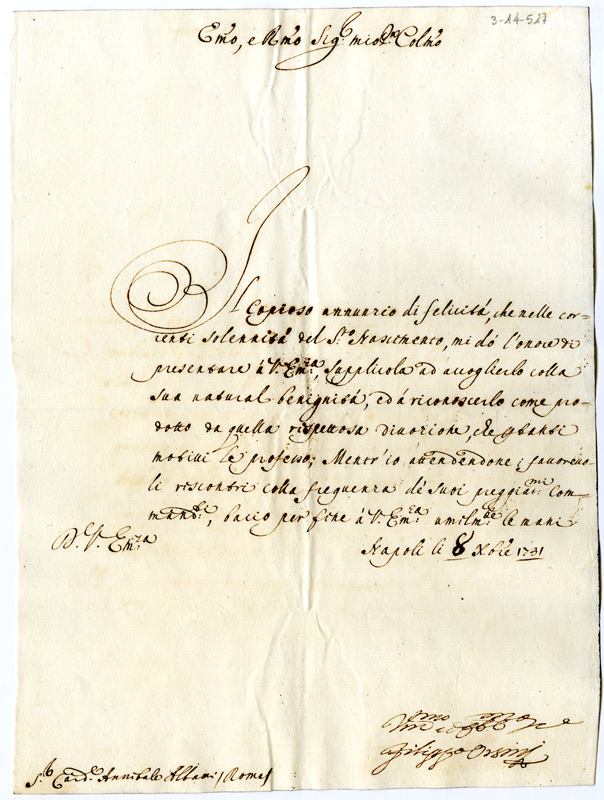 3-14-517
Emo, e Rmo Sig.r mio P.ne Colmo
Il Copioso annunzio di felicità, che nelle cor=
renti solennità del S.to Nascimento, mi dò l'onore di
presentare à V. Em.za, supplicola ad accoglierlo colla
sua natural benignità, ed à riconoscerlo come pro=
dotto da quella rispettosa divozione, che p tanti
motivi le professo; Mentr'io attendendone i favorevo=
li riscontri colla frequenza de' suoi preggiat.mi Com=
mand.ti, bacio per fine à V. Em.za umilm.te le mani
Napoli li 8 Xbre 1731
D. V. Em.za
Filippo Orsini
S.r Card.e Annibale Albani / Roma /